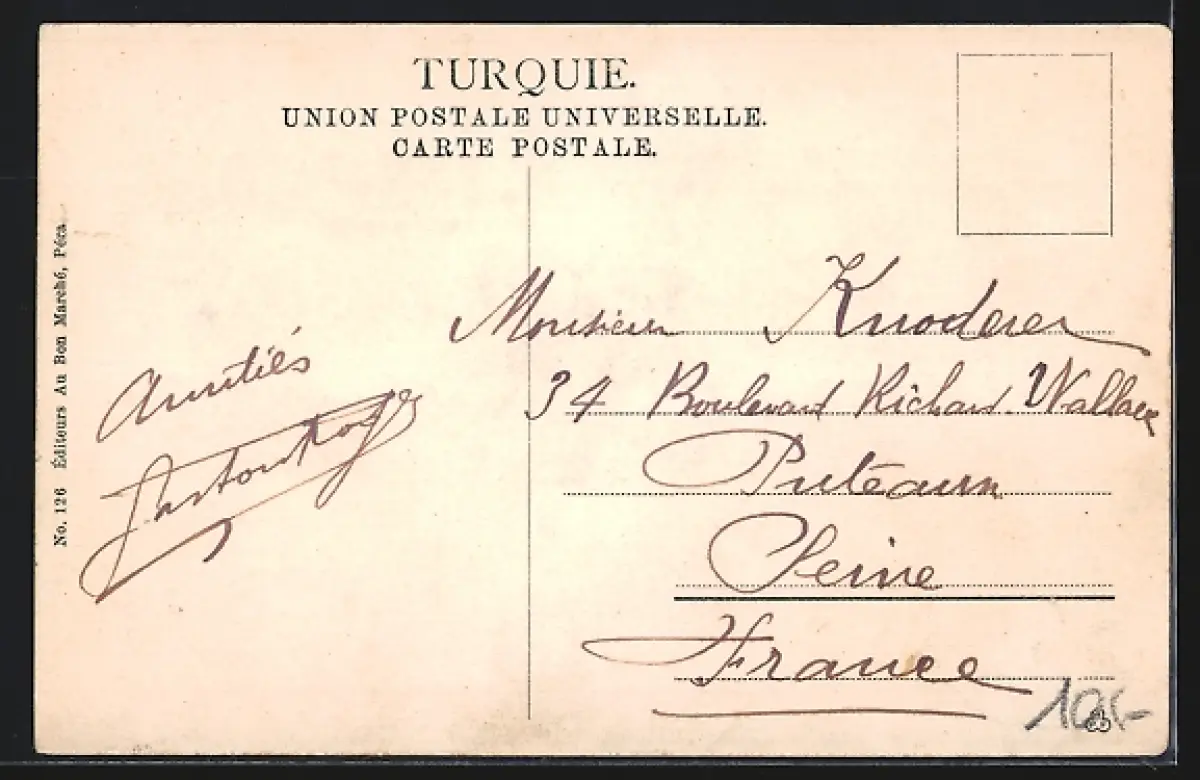 TURQUIE.
UNION POSTALE UNIVERSELLE.
CARTE POSTALE.
No. 126 Éditeurs Au Bon Marché, Péra
Amitiés
Monsieur Knoderer
34 Boulevard Richard Wallace
Puteaux
Seine
France